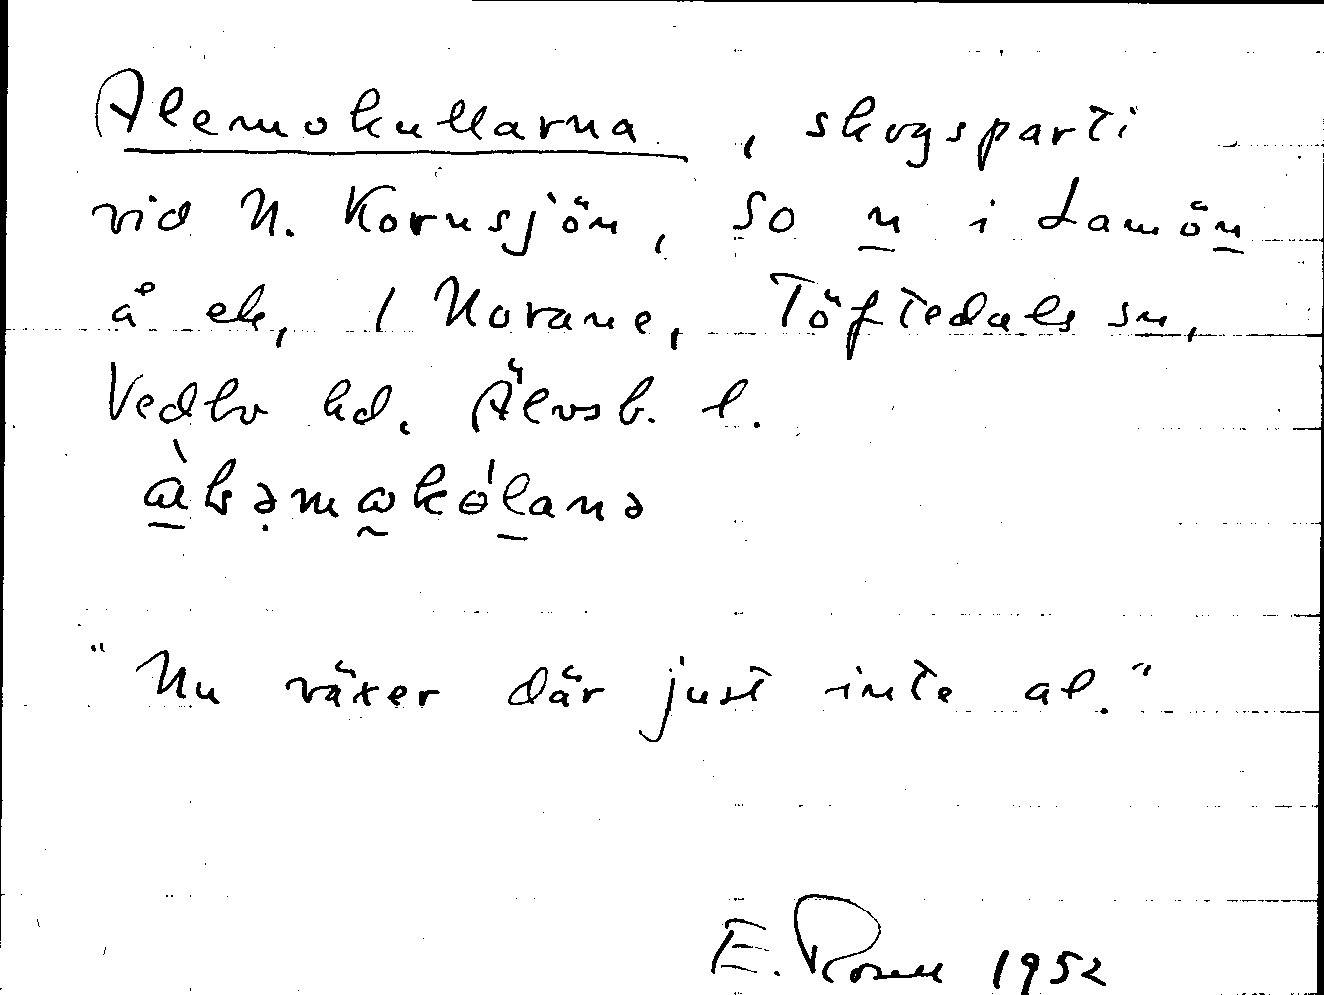 Alemokullarna, skogsparti
vid N. Kornsjön, SO n i Lamön
å ek, 1 Norane, Töftedals sn,
Vedbo hd. Älvsb. l.
"Nu växer där just inte al."
E. Rosell 1952